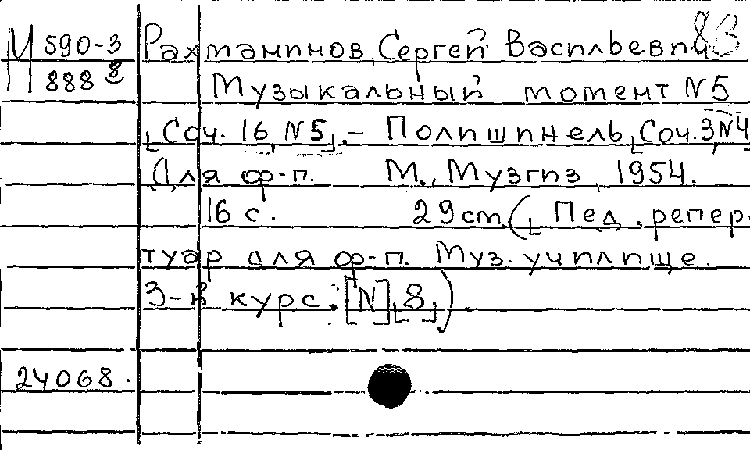 М 590-3 Рахманинов, Сергей Васильевич 83
888 Музыкальный момент N5
[Соч. 16, N5]. - Полишинель [Соч. 3, N4]
Для ф-п. М., Музгиз, 1954.
16 с. 29 cm. ([Пед. репер-
туар для ф-п. Муз. училище.
3-й курс. [N] [8])
24068.